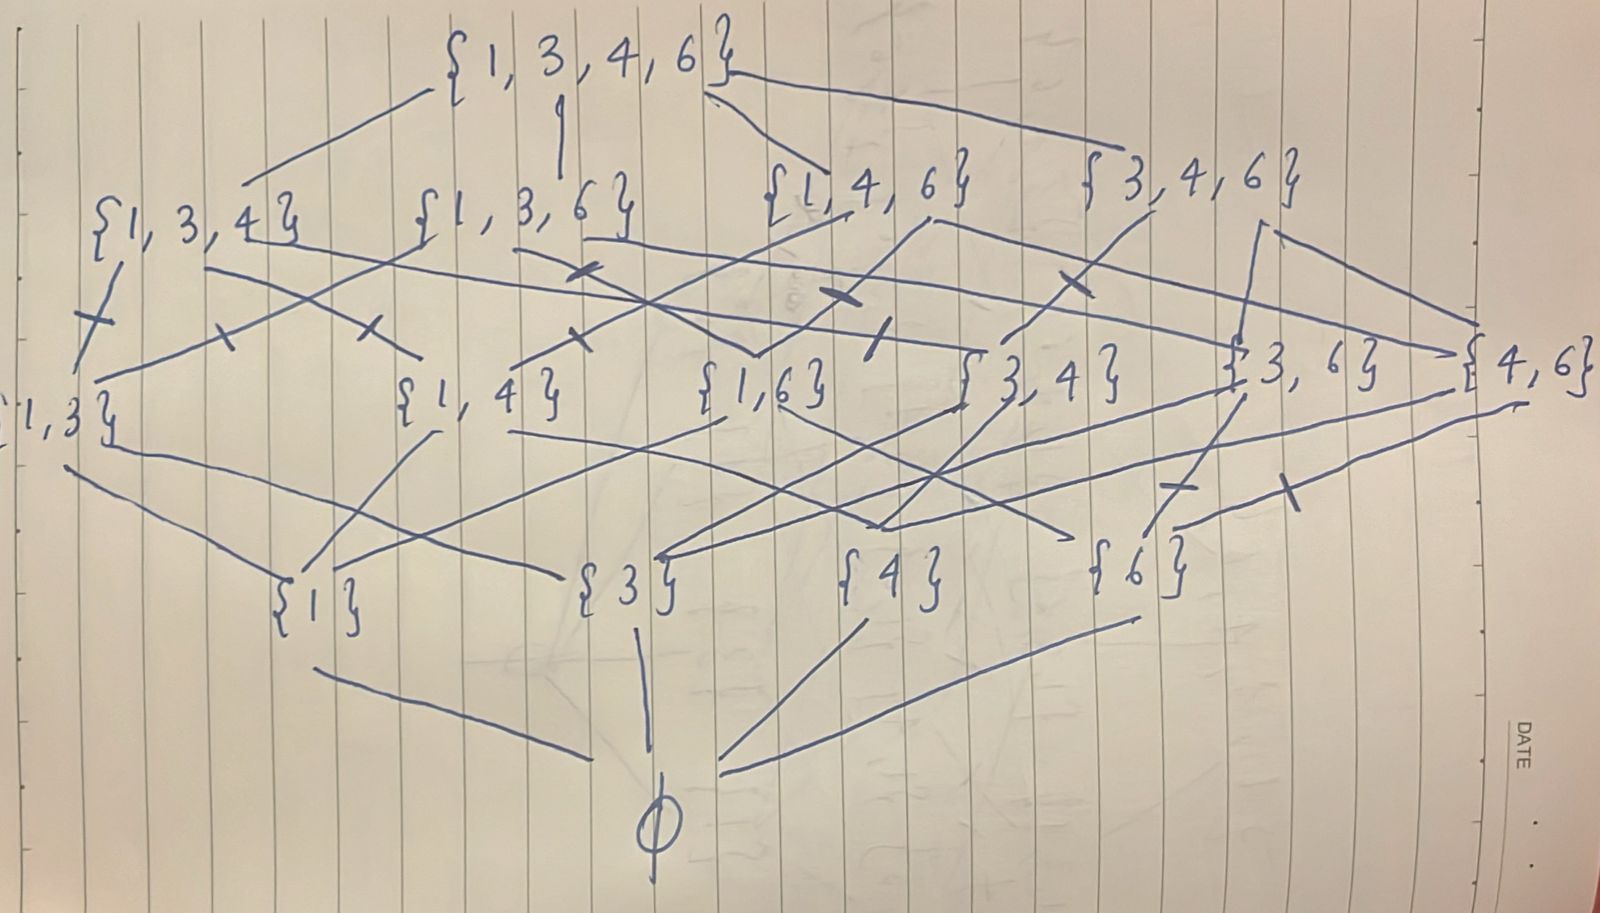 {1, 3, 4, 6}
{1, 3, 4} {1, 3, 6} {1, 4, 6} {3, 4, 6}
{1, 3} {1, 4} {1, 6} {3, 4} {3, 6} {4, 6}
{1} {3} {4} {6}
ϕ
DATE